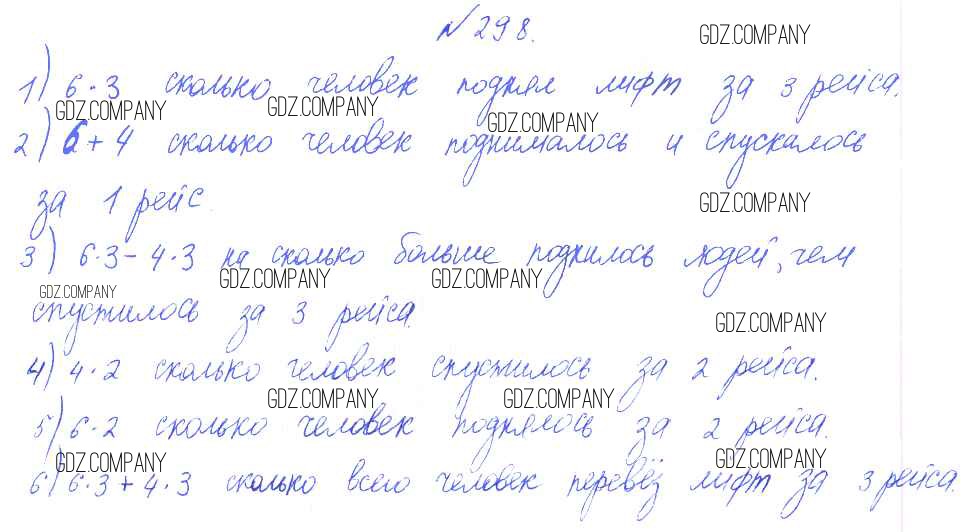 №298.
GDZ.COMPANY
1) 6·3 сколько человек поднял лифт за 3 рейса.
GDZ.COMPANY GDZ.COMPANY GDZ.COMPANY
2) 6+4 сколько человек поднималось и спускалось
за 1 рейс.
GDZ.COMPANY
3) 6·3-4·3 на сколько больше поднилось людей, чем
GDZ.COMPANY GDZ.COMPANY GDZ.COMPANY
спустилось за 3 рейса.
GDZ.COMPANY
4) 4·2 сколько человек спустилось за 2 рейса.
GDZ.COMPANY GDZ.COMPANY
5) 6·2 сколько человек поднялось за 2 рейса.
GDZ.COMPANY GDZ.COMPANY
6) 6·3+4·3 сколько всего человек перевёз лифт за 3 рейса.